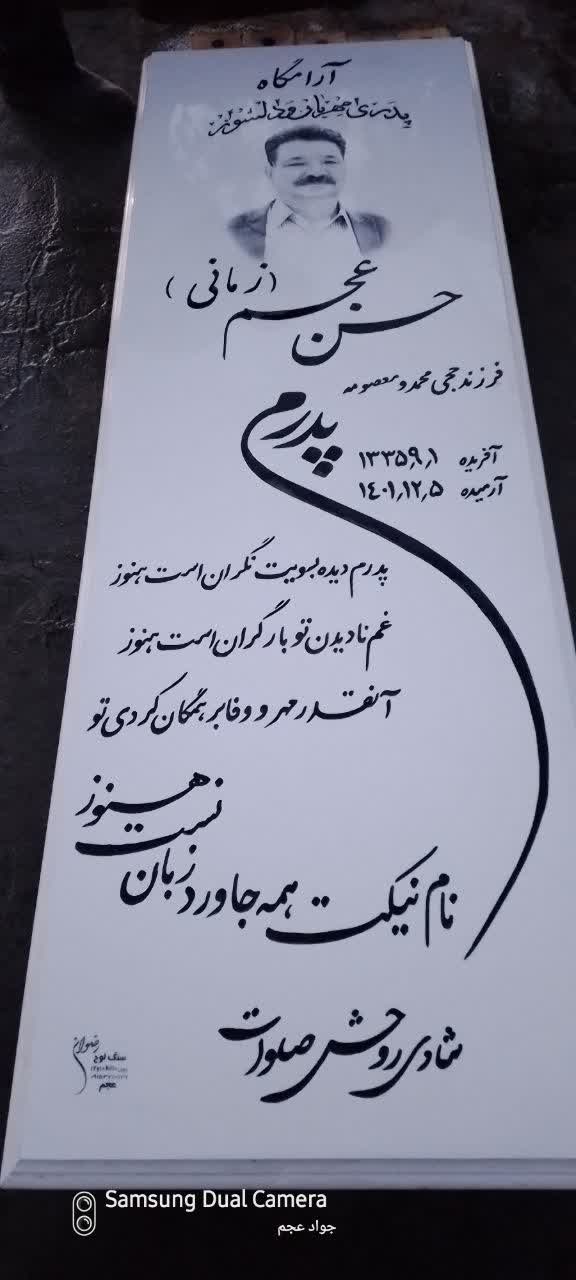 آرامگاه
پدری مهربان و دلسوز
حسن عجم (زمانی)
فرزند حجی محمد و معصومه
پدرم
آفریده ۱۳۳۵٫۹٫۱
آرمیده ۱۴۰۱٫۱۲٫۵
پدرم دیده بسویت نگران است هنوز
غم نادیدن تو بار گران است هنوز
آنقدر مهر و وفا بر همگان کردی تو
نام نیکت همه جا ورد زبان نست هنوز
شادی روحش صلوات
رضوان
سنگ لوح
عجم
Samsung Dual Camera
جواد عجم